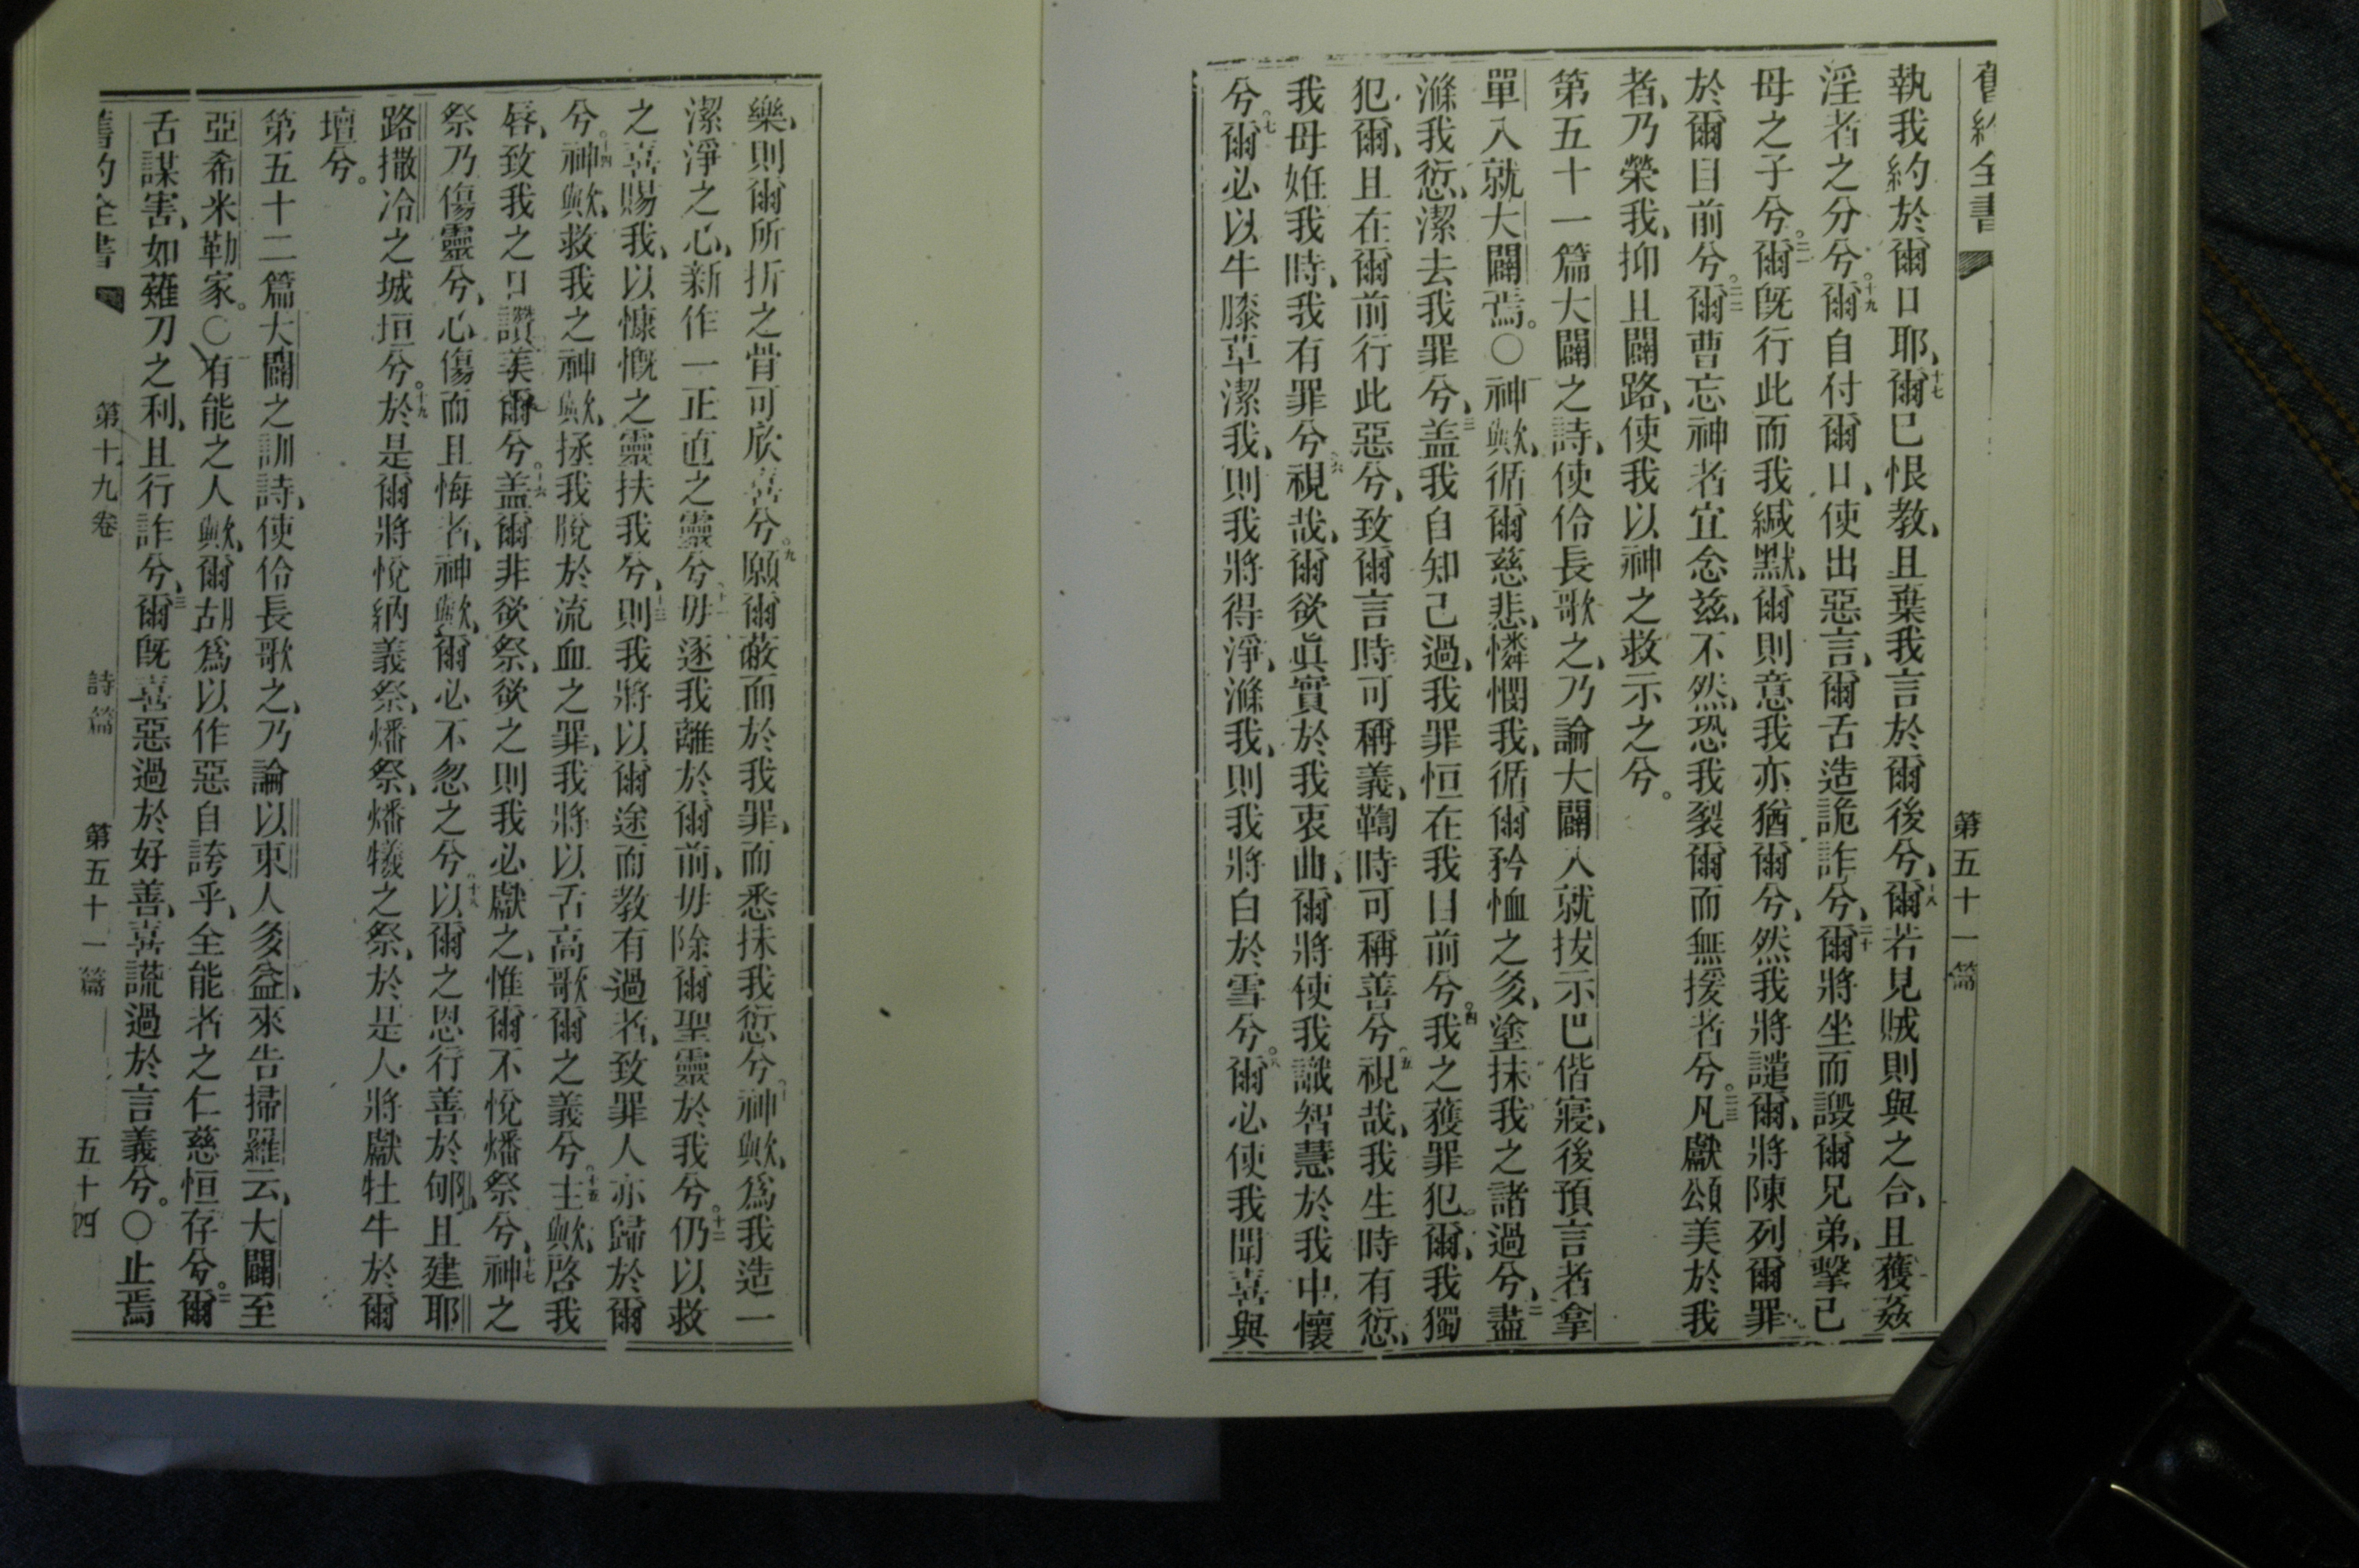 舊約全書 第五十一篇
執我約於爾口耶、十七爾已恨教、且棄我言於爾後兮、十八爾若見賊則與之合、且獲姦
淫者之分兮。十九爾自付爾口、使出惡言、爾舌造詭詐兮、二十爾將坐而譭爾兄弟、擊己
母之子兮。二一爾既行此而我緘默、爾則意我亦猶爾兮、然我將譴爾、將陳列爾罪
於爾目前兮。二二爾曹忘神者宜念茲、不然、恐我裂爾而無援者兮。二三凡獻頌美於我
者、乃榮我、抑且闢路、使我以神之救示之兮。
第五十一篇大闢之詩、使伶長歌之、乃論大闢入就拔示巴偕寢、後預言者拿
單入就大闢焉。○神歟、循爾慈悲、憐憫我、循爾矜恤之多、塗抹我之諸過兮、二盡
滌我愆、潔去我罪兮、三盖我自知己過、我罪恒在我目前兮。四我之獲罪犯爾、我獨
犯爾、且在爾前行此惡兮、致爾言時可稱義、鞫時可稱善兮。五視哉、我生時有愆、
我母姙我時、我有罪兮。六視哉、爾欲眞實於我衷曲、爾將使我識智慧於我中懷
兮。七爾必以牛膝草潔我、則我將得淨、滌我、則我將白於雪兮。八爾必使我聞喜與
樂、則爾所折之骨可欣喜兮。九願爾蔽面於我罪、而悉抹我愆兮。十神歟、爲我造一
潔淨之心、新作一正直之靈兮。十一毋逐我離於爾前、毋除爾聖靈於我兮。十二仍以救
之喜賜我、以慷慨之靈扶我兮、十三則我將以爾途而教有過者、致罪人亦歸於爾
兮。十四神歟、救我之神歟、拯我脫於流血之罪、我將以舌高歌爾之義兮。十五主歟、啓我
唇、致我之口讚美爾兮。十六盖爾非欲祭、欲之則我必獻之、惟爾不悅燔祭兮、十七神之
祭乃傷靈兮、心傷而且悔者、神歟、爾必不忽之兮。十八以爾之恩行善於郇、且建耶
路撒冷之城垣兮。十九於是爾將悅納義祭、燔祭、燔犧之祭、於是人將獻牡牛於爾
壇兮。
第五十二篇大闢之訓詩、使伶長歌之、乃論以東人多益、來告掃羅云、大闢至
亞希米勒家。○有能之人歟、爾胡爲以作惡自誇乎、全能者之仁慈恒存兮。二爾
舌謀害、如薙刀之利、且行詐兮、三爾既喜惡過於好善、喜謊過於言義兮。○止焉
舊約全書 第十九卷 詩篇 第五十一篇 五十四